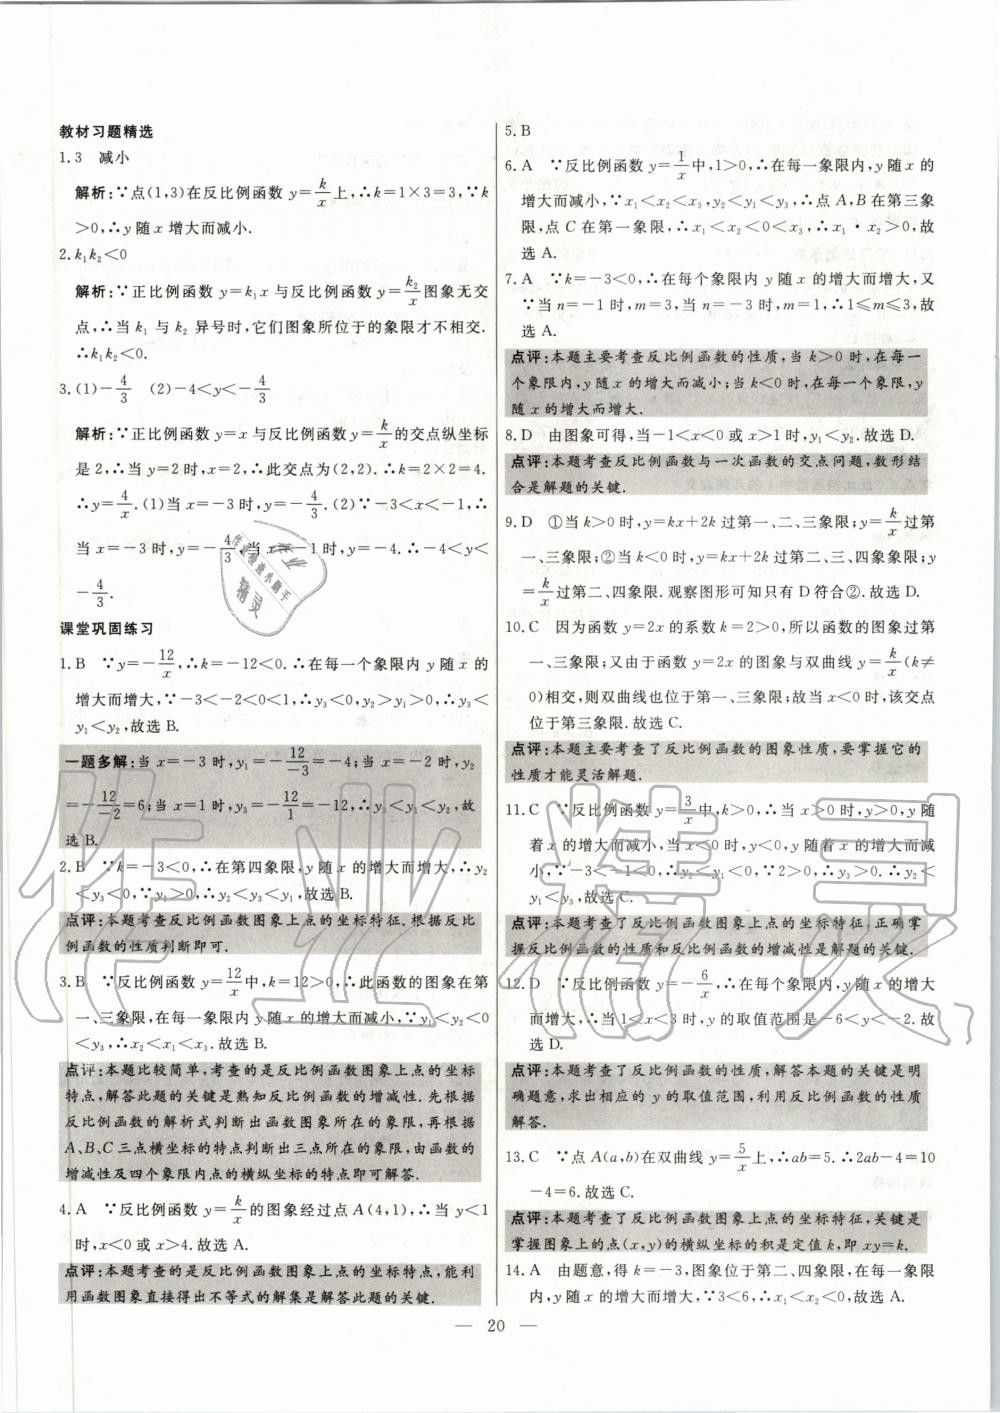 教材习题精选
1.3 减小
解析:∵点(1,3)在反比例函数 y=k/x上,∴k=1×3=3,∵k
>0,∴y 随 x 增大而减小.
2.k₁k₂<0
解析:∵正比例函数 y=k₁x 与反比例函数 y=k₂/x图象无交
点,∴当 k₁ 与 k₂ 异号时,它们图象所位于的象限才不相交.
∴k₁k₂<0.
3.(1)-4/3 (2)-4<y<-4/3
解析:∵正比例函数 y=x 与反比例函数 y=k/x的交点纵坐标
是 2,∴当 y=2 时,x=2,∴此交点为(2,2). ∴k=2×2=4.
∴y=4/x.(1)当 x=-3 时,y=-4/3.(2)∵-3<x<-1,∴
当 x=-3 时,y=-4/3,当 x=-1 时,y=-4.∴-4<y<
-4/3.
课堂巩固练习
1.B ∵y=-12/x,∴k=-12<0.∴在每一个象限内 y 随 x 的
增大而增大,∵-3<-2<0<1,∴y₃<0,y₂>y₁>0,∴y₃<
y₁<y₂,故选 B.
一题多解:当 x=-3 时,y₁=-12/-3=-4;当 x=-2 时,y₂
=-12/-2=6;当 x=1 时,y₃=-12/1=-12,∴y₃<y₁<y₂,故
选 B.
2.B ∵k=-3<0,∴在第四象限,y 随 x 的增大而增大,∴y₂
<y₃<0,∵y₁>0,∴y₂<y₃<y₁,故选 B.
点评:本题考查反比例函数图象上点的坐标特征.根据反比
例函数的性质判断即可.
3.B ∵反比例函数 y=12/x中,k=12>0,∴此函数的图象在第
一、三象限,在每一象限内 y 随 x 的增大而减小,∵y₁<y₂<0
<y₃,∴x₂<x₁<x₃.故选 B.
点评:本题比较简单,考查的是反比例函数图象上点的坐标
特点,解答此题的关键是熟知反比例函数的增减性.先根据
反比例函数的解析式判断出函数图象所在的象限,再根据
A、B、C 三点横坐标的特点判断出三点所在的象限,由函数的
增减性及四个象限内点的横纵坐标的特点即可解答.
4.A ∵反比例函数 y=k/x的图象经过点 A(4,1),∴当 y<1
时,x<0 或 x>4.故选 A.
点评:本题考查的是反比例函数图象上点的坐标特点,能利
用函数图象直接得出不等式的解集是解答此题的关键.
5.B
6.A ∵反比例函数 y=1/x中,1>0,∴在每一象限内,y 随 x 的
增大而减小,∵x₁<x₂<x₃,y₂<y₁<y₃,∴点 A,B 在第三象
限,点 C 在第一象限,∴x₁<x₂<0<x₃,∴x₁·x₂>0,故
选 A.
7.A ∵k=-3<0,∴在每个象限内 y 随 x 的增大而增大,又
∵当 n=-1 时,m=3,当 n=-3 时,m=1,∴1≤m≤3,故
选 A.
点评:本题主要考查反比例函数的性质,当 k>0 时,在每一
个象限内,y 随 x 的增大而减小;当 k<0 时,在每一个象限,y
随 x 的增大而增大.
8.D 由图象可得,当-1<x<0 或 x>1 时,y₁<y₂.故选 D.
点评:本题考查反比例函数与一次函数的交点问题,数形结
合是解题的关键.
9.D ①当 k>0 时,y=kx+2k 过第一、二、三象限;y=k/x过第
一、三象限;②当 k<0 时,y=kx+2k 过第二、三、四象象限;y
=k/x过第二、四象限.观察图形可知只有 D 符合②.故选 D.
10.C 因为函数 y=2x 的系数 k=2>0,所以函数的图象过第
一、三象限;又由于函数 y=2x 的图象与双曲线 y=k/x(k≠
0)相交,则双曲线也位于第一、三象限;故当 x<0 时,该交点
位于第三象限.故选 C.
点评:本题主要考查了反比例函数的图象性质,要掌握它的
性质才能灵活解题.
11.C ∵反比例函数 y=3/x中,k>0,∴当 x>0 时,y>0,y 随
着 x 的增大而减小;当 x<0 时,y<0,y 随着 x 的增大而减
小,∵-3<-1<0,∴y₂<y₁<0,∵2>0,∴y₃>0.∴y₂<
y₁<y₃,故选 C.
点评:本题考查了反比例函数图象上点的坐标特征,正确掌
握反比例函数的性质和反比例函数的增减性是解题的关键.
12.D ∵反比例函数 y=-6/x,∴在每个象限内,y 随 x 的增大
而增大,∴当 1<x<3 时,y 的取值范围是-6<y<-2.故
选 D.
点评:本题考查了反比例函数的性质,解答本题的关键是明
确题意,求出相应的 y 的取值范围,利用反比例函数的性质
解答.
13.C ∵点 A(a,b)在双曲线 y=5/x上,∴ab=5.∴2ab-4=10
-4=6.故选 C.
点评:本题考查了反比例函数图象上点的坐标特征,关键是
掌握图象上的点(x,y)的横纵坐标的积是定值 k,即 xy=k.
14.A 由题意,得 k=-3,图象位于第二、四象限,在每一象限
内,y 随 x 的增大而增大,∵3<6,∴x₁<x₂<0,故选 A.
— 20 —
作业精灵